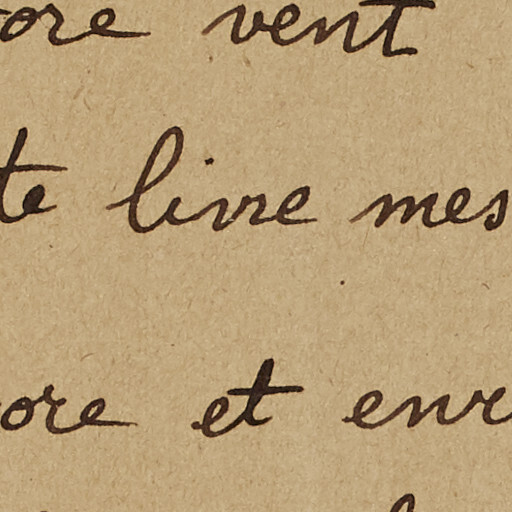 ore vent
te livre mes
ore et enr